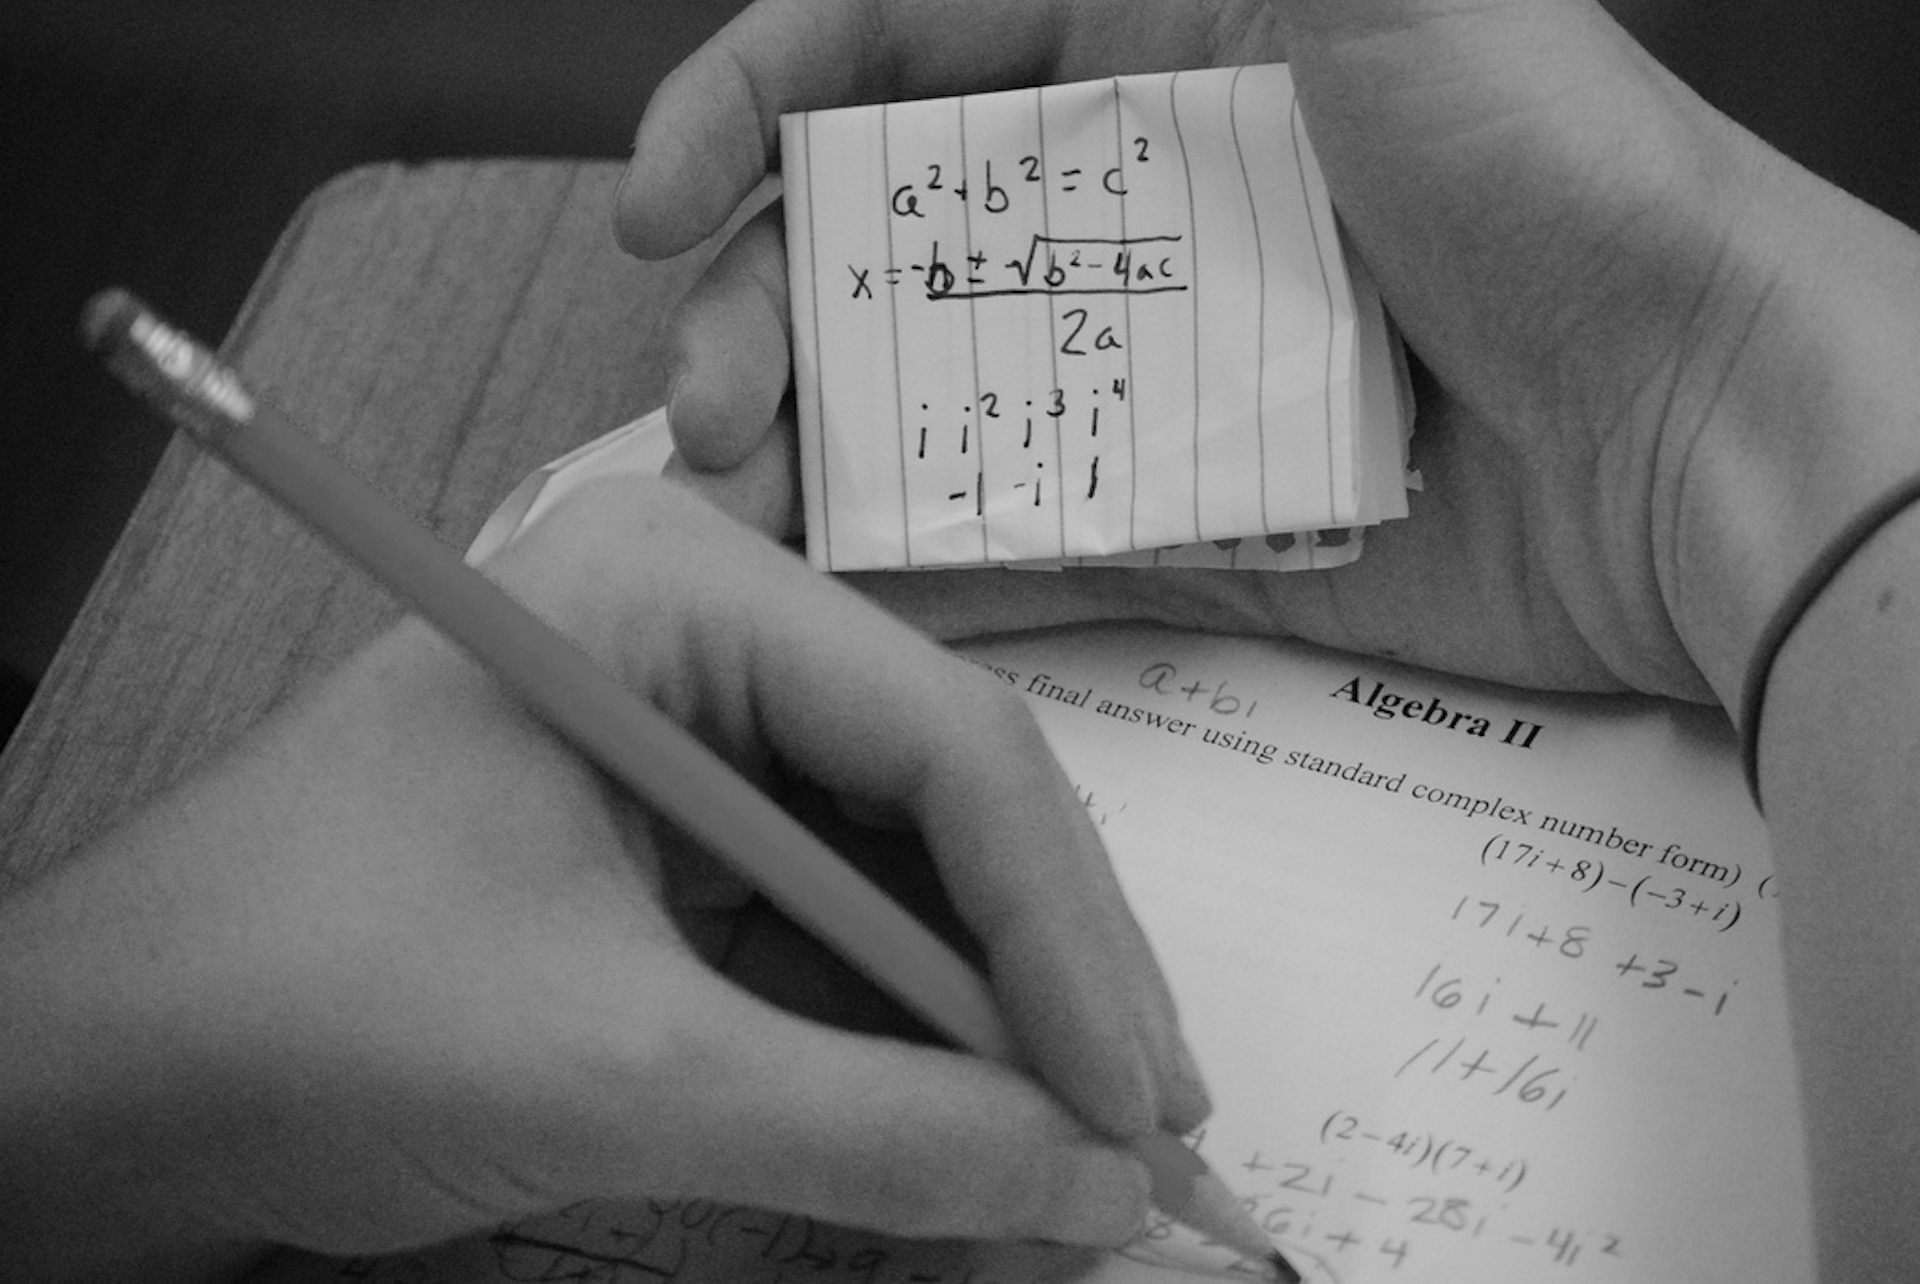 a² + b² = c²
x = -b ± √b²-4ac
2a
i i² i³ i⁴
-1 -i 1
a+bi
Algebra II
final answer using standard complex number form)
(17i+8)-(-3+i)
17i+8 +3-i
16i + 11
11+16i
(2-4i)(7+i)
+2i - 28i - 4i²
6i + 4